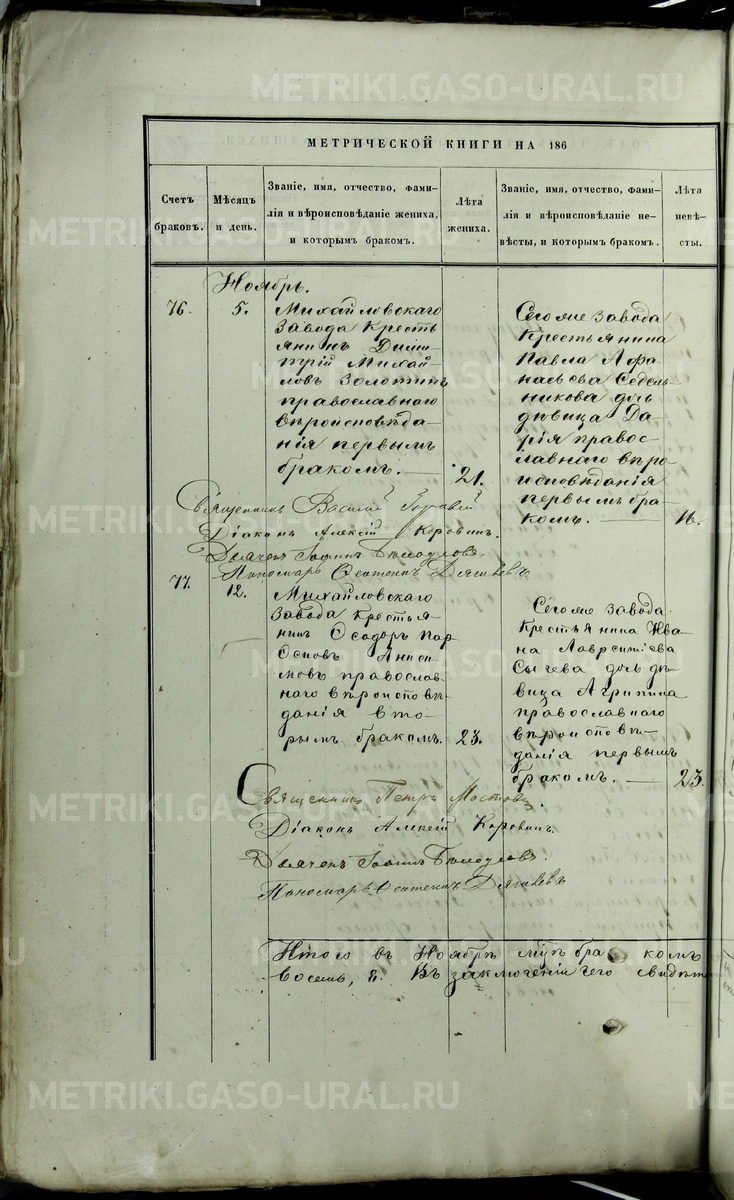 МЕТРИЧЕСКОЙ КНИГИ НА 186
Счетъ
браковъ.
Мѣсяцъ
и день.
Званіе, имя, отчество, фами-
лія и вѣроисповѣданіе жениха,
и которымъ бракомъ.
Лѣта
жениха.
Званіе, имя, отчество, фами-
лія и вѣроисповѣланіе не-
вѣсты, и которымъ бракомъ.
Лѣта
невѣ-
сты.
Ноябрь.
76.
5.
Михайловскаго
завода кресть
янинъ Дими
трій Михай
ловъ Золотинъ
православнаго
вѣроисповѣда
нія первымъ
бракомъ.
21.
Сегоже завода
крестьянина
Павла Афа
насьева Седель
никова дочь
дѣвица Да
рія правос
лавнаго вѣро
исповѣданія
первымъ бра
комъ.
16.
Священникъ Василій
Діаконъ Алексій Коровинъ.
Дьячекъ Іоаннъ
Пономарь
77.
12.
Михайловскаго
завода крестья
нинъ Ѳеодоръ Пар
ѳеновъ Аниси
мовъ православ
наго вѣроисповѣ
данія вто
рымъ бракомъ.
23.
Сегоже завода
крестьянина Ива
на Лаврентіева
Сычева дочь дѣ
вица Агрипина
православнаго
вѣроисповѣ
данія первымъ
бракомъ.
23.
Священникъ Петръ
Діаконъ Алексій Коровинъ.
Дьячекъ Іоаннъ
Пономарь
Итого въ Ноябрѣ мцѣ бракомъ
восемь, 8. Въ заключеніи чего свидѣт
METRIKI.GASO-URAL.RU